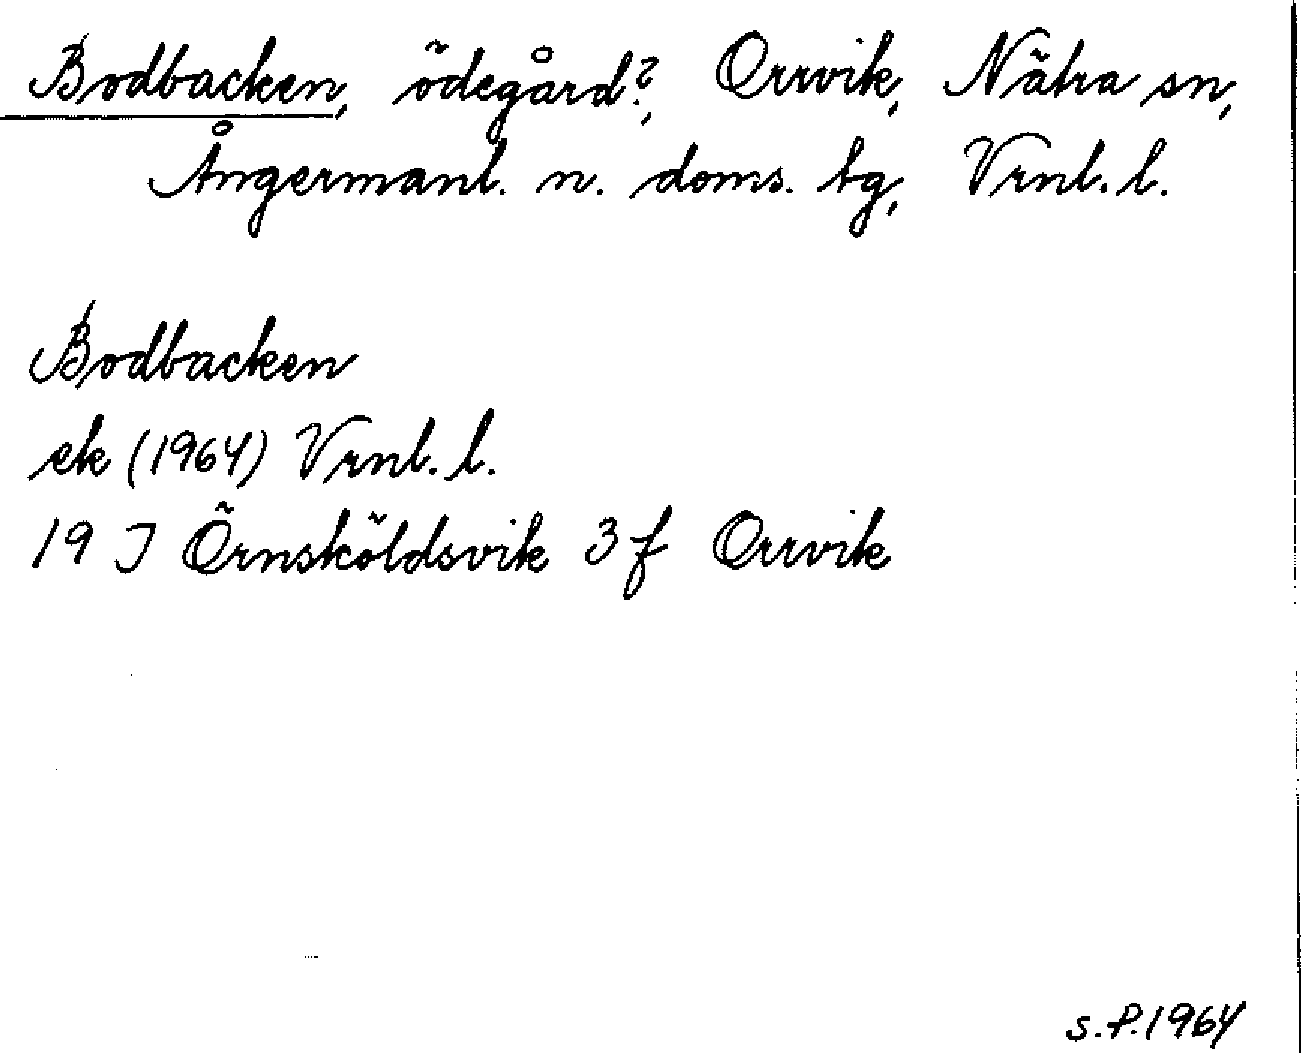 Bodbacken, ödegård?, Orrvik, Nätra sn,
Ångermanl. n. doms. tg, Vrnl. l.
Bodbacken
ek (1964) Vrnl. l.
19 J Örnsköldsvik 3 f Orrvik
s.P.1964